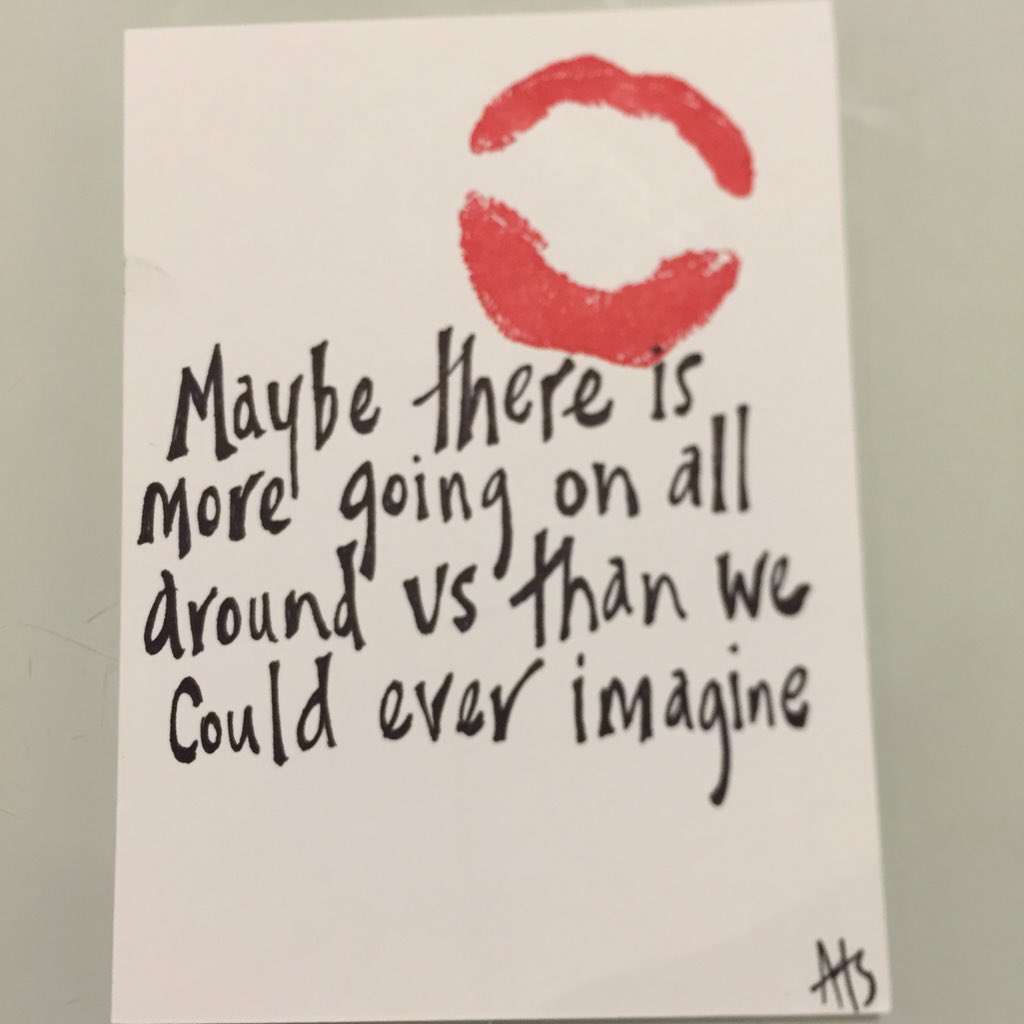 Maybe there is
more going on all
around us than we
Could ever imagine
AHS